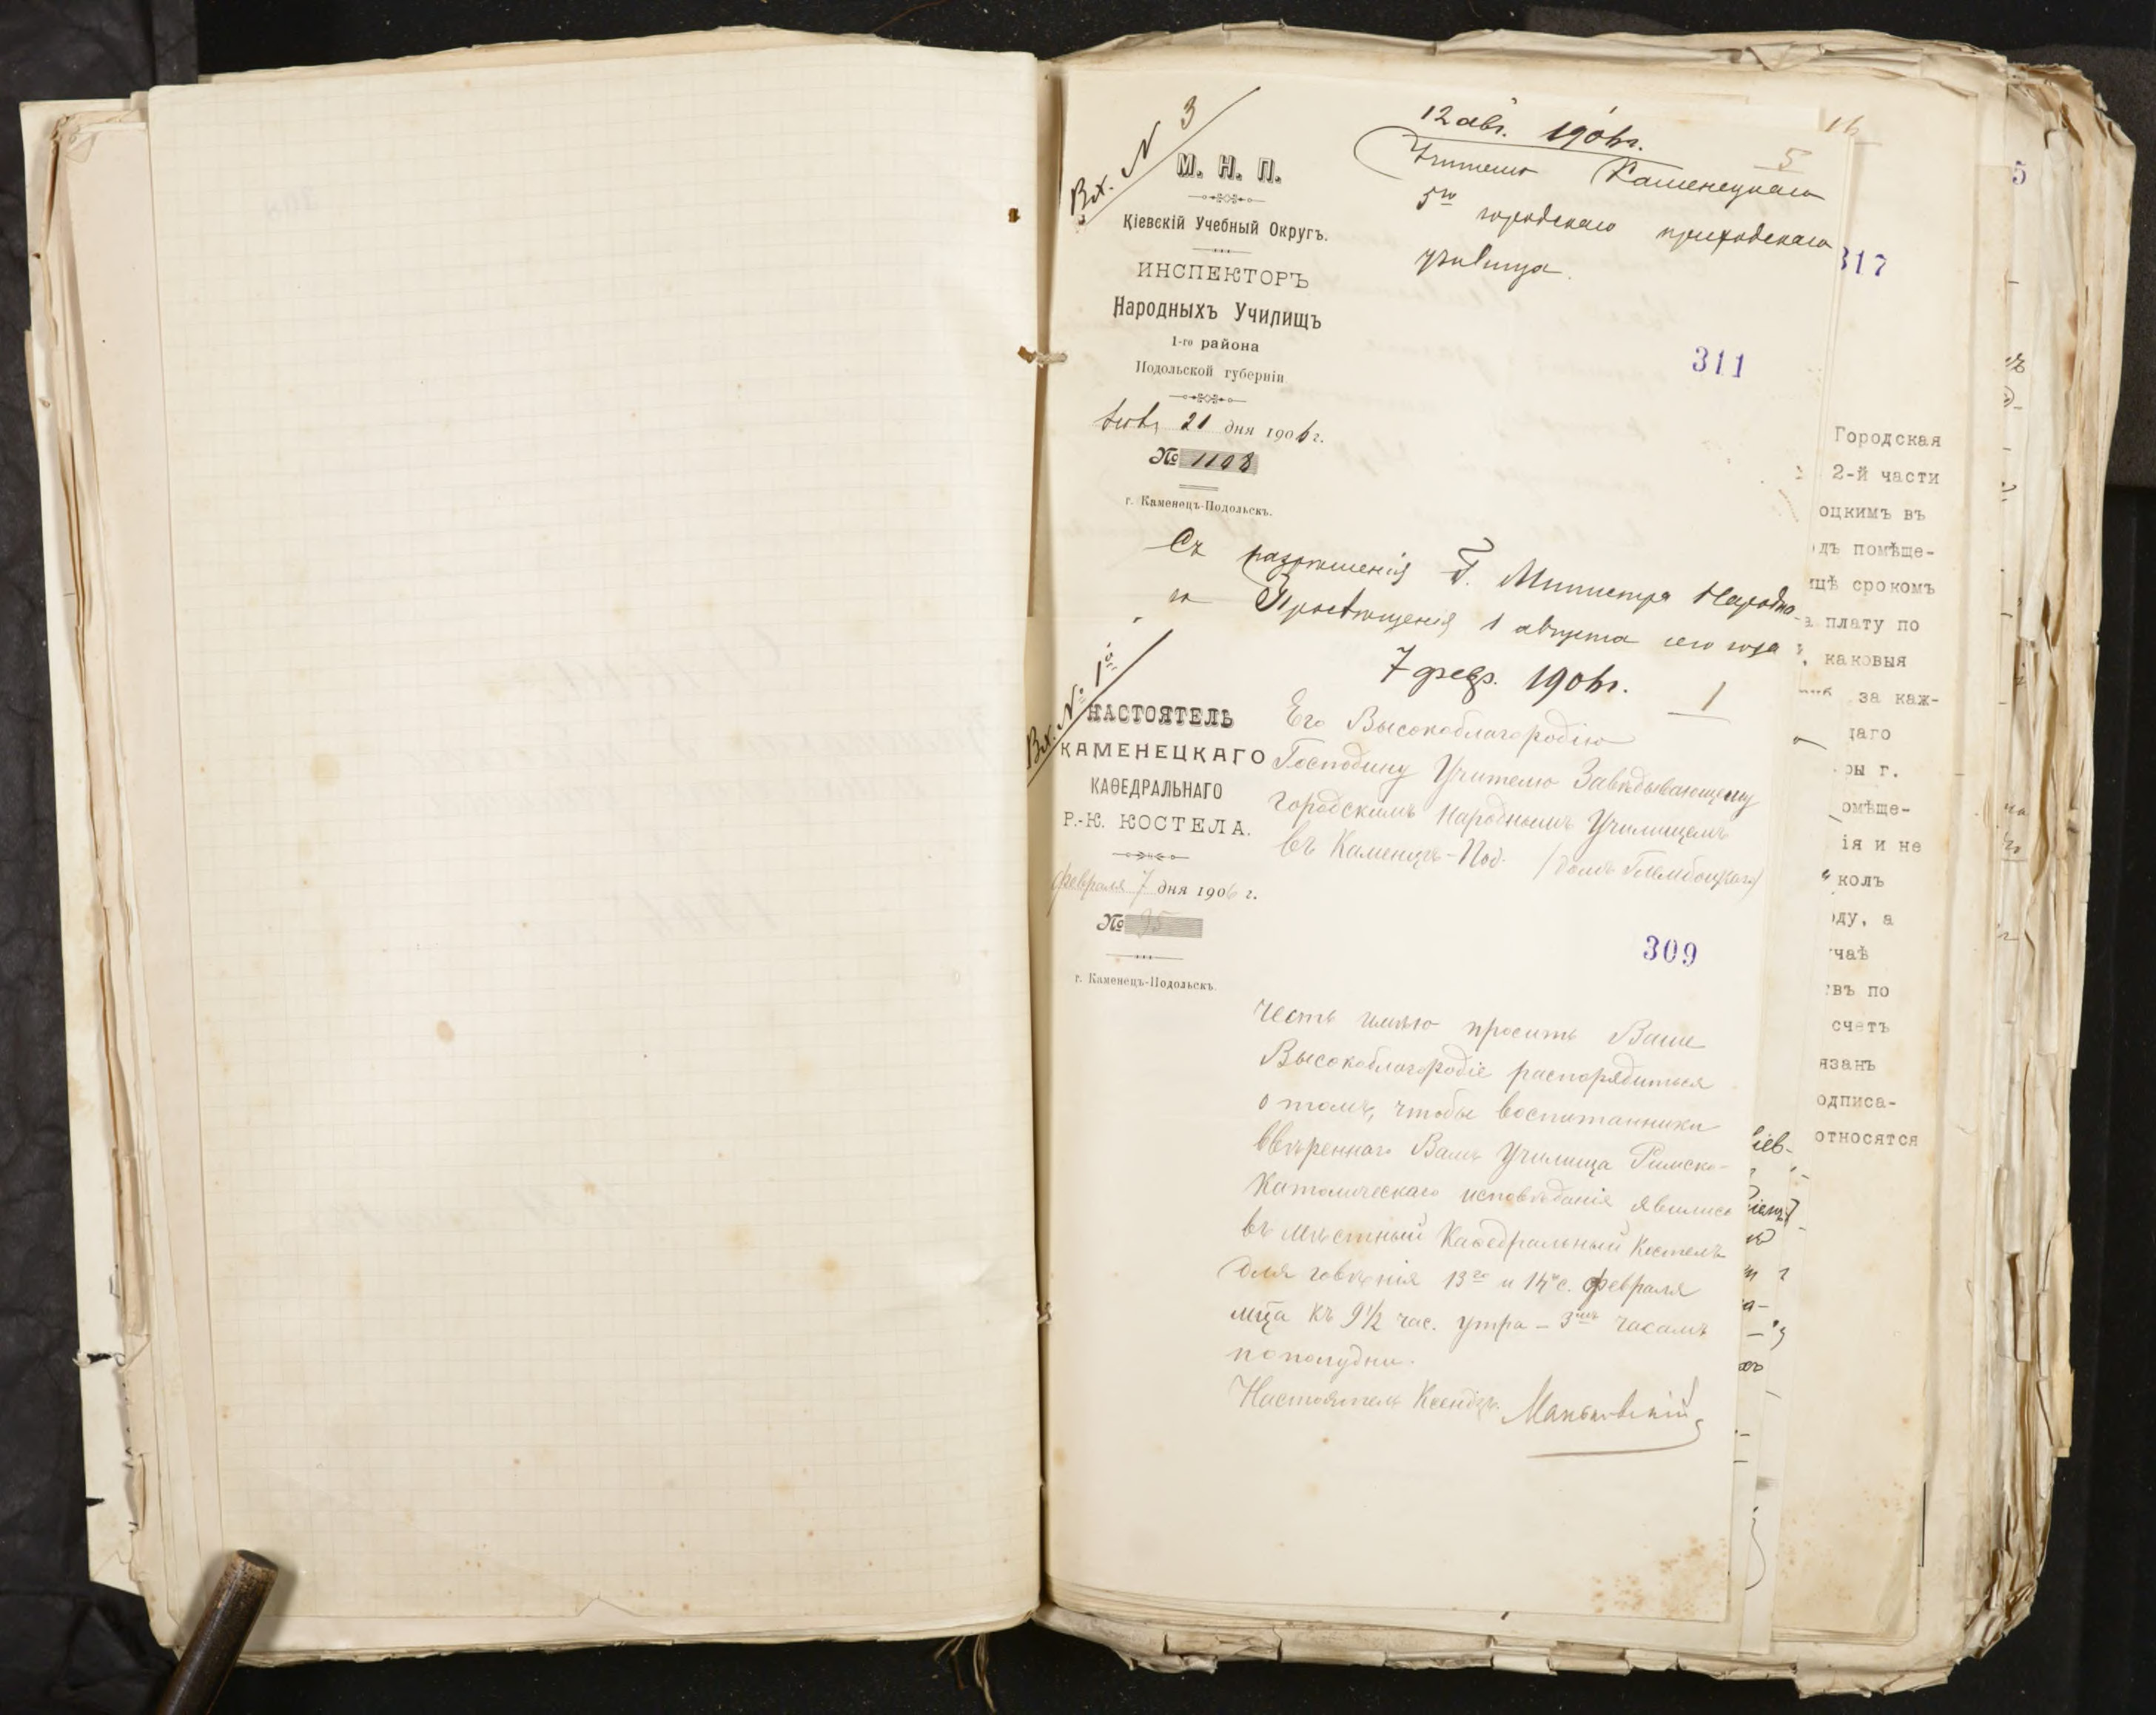 Вх. N 3
М. Н. П.
Кіевскій Учебный Округъ.
ИНСПЕКТОРЪ
Народныхъ Училищъ
1-го района
Подольской губерніи
Авг. 21 дня 1906 г.
№ 1108
г. Каменецъ-Подольскъ.
12 авг. 1906 г.
5
Учителю Каменецкаго
5го городскаго приходскаго
училища.
311
Съ разрѣшенія Г. Министра Народна-
го Просвѣщенія 1 августа сего года
Вх. № 1й
НАСТОЯТЕЛЬ
КАМЕНЕЦКАГО
КАѲЕДРАЛЬНАГО
Р.-К. КОСТЕЛА.
февраля 7 дня 1906 г.
№ 35
г. Каменецъ-Подольскъ.
7 февр. 1906 г.
1
Его Высокоблагородію
Господину Учителю Завѣдывающему
Городскимъ Народнымъ Училищемъ
въ Каменцѣ-Под. (домъ
309
Честь имѣю просить Ваше
Высокоблагородіе распорядиться
о томъ, чтобы воспитанники
ввѣреннаго Вамъ Училища Римско-
Католическаго исповѣданія явились
въ мѣстный Каѳедральный Костелъ
для говѣнія 13го и 14го с. февраля
мца къ 9 1/2 час. утра – 3мъ часамъ
пополудни.
Настоятель Ксендзъ Маньковскій
16
317
Городская
2-й части
оцкимъ въ
дъ помѣще-
ицѣ срокомъ
а плату по
каковыя
за каж-
щаго
ры г.
омѣще-
ія и не
колъ
ду, а
чаѣ
въ по
счетъ
язанъ
одписа-
относятся
5